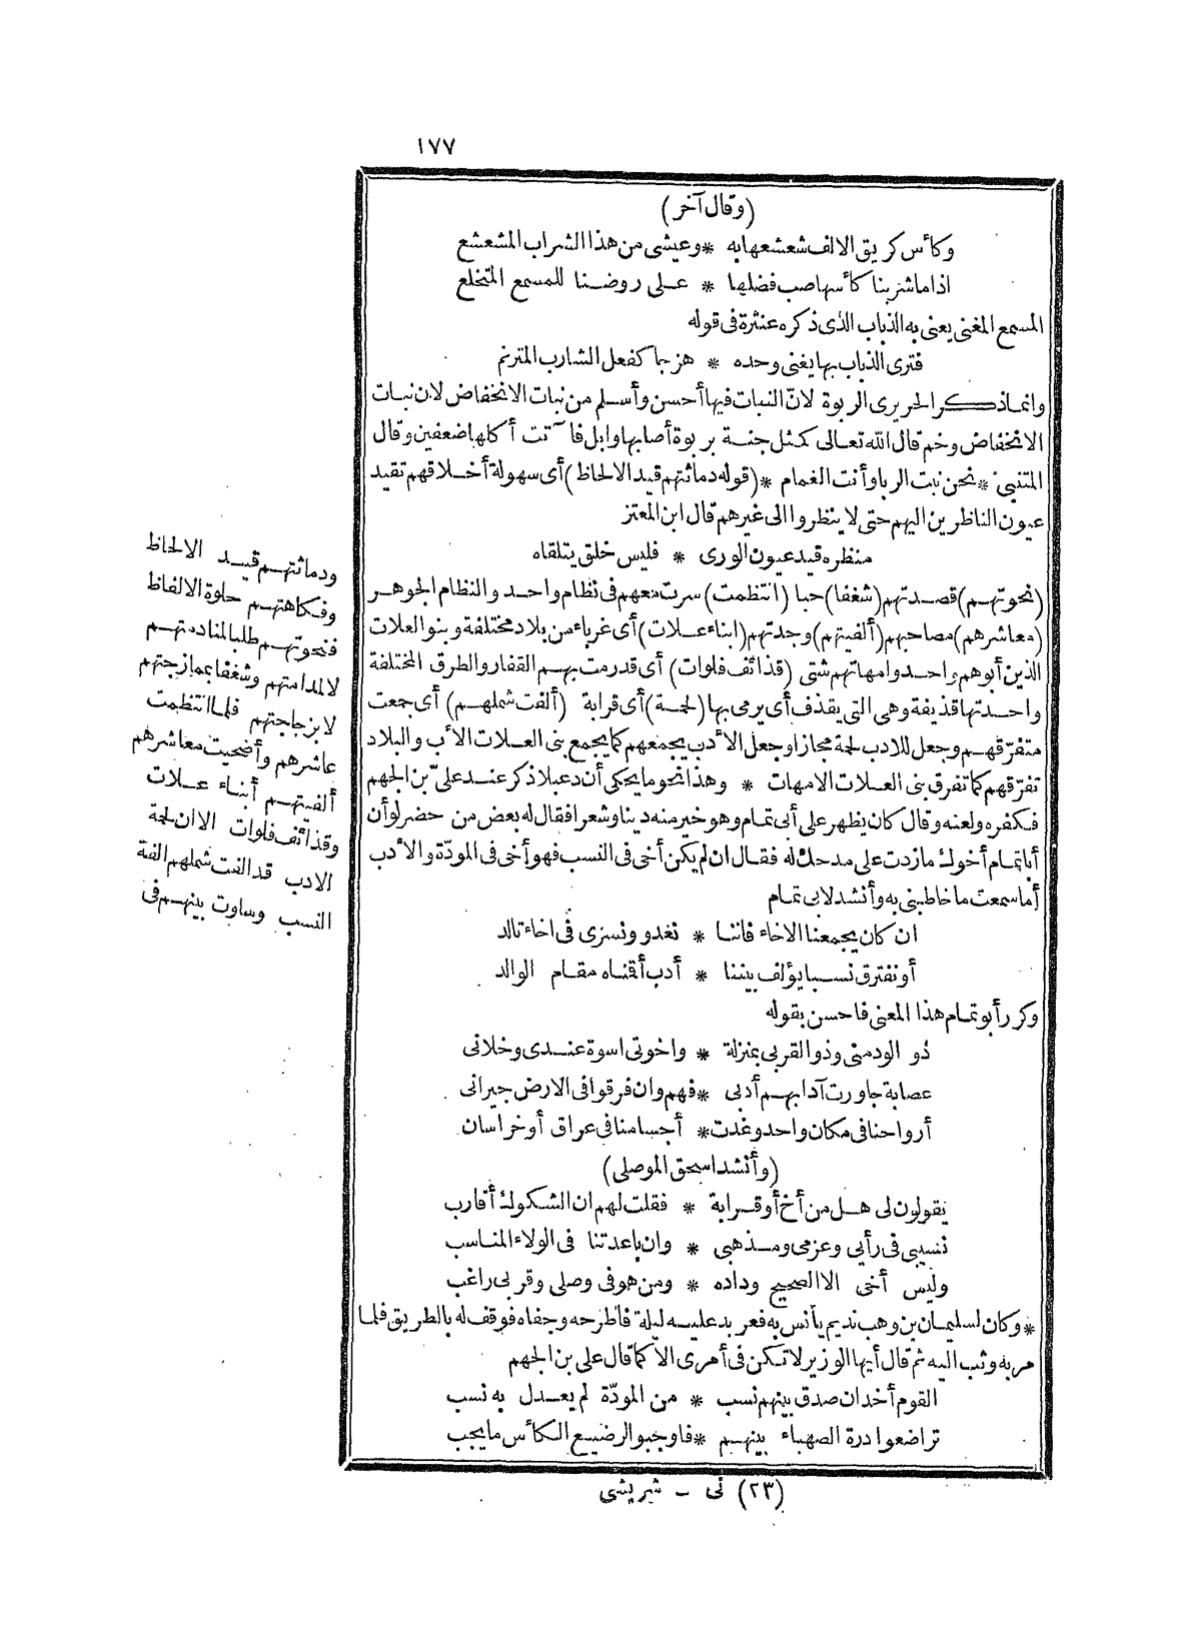 ١٧٧
(وقال آخر)
وكأس كريق الالف شعشعها به * وعيشى من هذا الشراب المشعشع
اذا ما شربنا كأسها صب فضلها * على روضنا للمسمع المتخلع
المسمع المغنى يعنى به الذباب الذى ذكره عنترة فى قوله
فترى الذباب بها يغنى وحده * هزجا كفعل الشارب المترنم
وانما ذكر الحريرى الربوة لانّ النبات فيها أحسن وأسلم من نبات الانخفاض لان نبات
الانخفاض وخم قال الله تعالى كمثل جنة بربوة أصابها وابل فآتت أكلها ضعفين وقال
المتنبى * نحن نبت الربا وأنت الغمام * (قوله دماثتهم قيد الالحاظ) أى سهولة أخلاقهم تقيد
عيون الناظرين اليهم حتى لا ينظروا الى غيرهم قال ابن المعتز
منظره قيد عيون الورى * فليس خلق يتلقاه
(نحوتهم) قصدتهم (شغفا) حبا (انتظمت) سرت معهم فى نظام واحد والنظام الجوهر
(معاشرهم) مصاحبهم (ألفيتهم) وجدتهم (ابناء علات) أى غرباء من بلاد مختلفة وبنو العلات
الذين أبوهم واحد وامهاتهم شتى (قذائف فلوات) أى قد رمت بهم القفار والطرق المختلفة
واحدتها قذيفة وهى التى يقذف أى يرمى بها (لحمة) أى قرابة (ألفت شملهم) أى جمعت
متفرّقهم وجعل للادب لحمة مجازا وجعل الأدب يجمعهم كما يجمع بنى العلات الأب والبلاد
تفرّقهم كما تفرق بنى العلات الامهات * وهذا نحو ما يحكى أن دعبلا ذكر عند علىّ بن الجهم
فكفره ولعنه وقال كان يظهر على أبى تمام وهو خير منه دينا وشعرا فقال له بعض من حضر لو أن
أبا تمام أخوك ما زدت على مدحك له فقال ان لم يكن أخى فى النسب فهو أخى فى المودّة والأدب
أما سمعت ما خاطبنى به وأنشد لابى تمام
ان كان يجمعنا الاخاء فاننا * نغدو ونسرى فى اخاء تالد
أو نفترق نسبا يؤلف بيننا * أدب أقناه مقام الوالد
وكرر أبو تمام هذا المعنى فاحسن بقوله
ذو الود منى وذو القربى بمنزلة * واخوتى اسوة عندى وخلانى
عصابة جاورت آدابهم أدبى * فهم وان فرقوا فى الارض جيرانى
أرواحنا فى مكان واحد وغدت * أجسامنا فى عراق أو خراسان
(وأنشد اسحق الموصلى)
يقولون لى هل من أخ أو قرابة * فقلت لهم ان الشكول أقارب
نسيبى فى رأيى وعزمى ومذهبى * وان باعدتنا فى الولاء المناسب
وليس أخى الا الصحيح وداده * ومن هو فى وصلى وقربى راغب
* وكان لسليمان بن وهب نديم يأنس به فعربد عليه ليلة فاطرحه وجفاه فوقف له بالطريق فلما
مر به وثب اليه ثم قال أيها الوزير لا تكن فى أمرى الا كما قال على بن الجهم
القوم أخدان صدق بينهم نسب * من المودّة لم يعدل به نسب
تراضعوا درة الصهباء بينهم * فاوجبوا لرضيع الكأس ما يجب
(٢٣) نى - شريشى
ودماثتهم قيد الالحاظ
وفكاهتهم حلوة الالفاظ
فنحوتهم طلبا لمنادمتهم
لا لمدامتهم وشغفا بممازجتهم
لا بزجاجتهم فلما انتظمت
عاشرهم وأضحيت معاشرهم
ألفيتهم أبناء علات
وقذائف فلوات الا ان لحمة
الادب قد الفت شملهم الفة
النسب وساوت بينهم فى